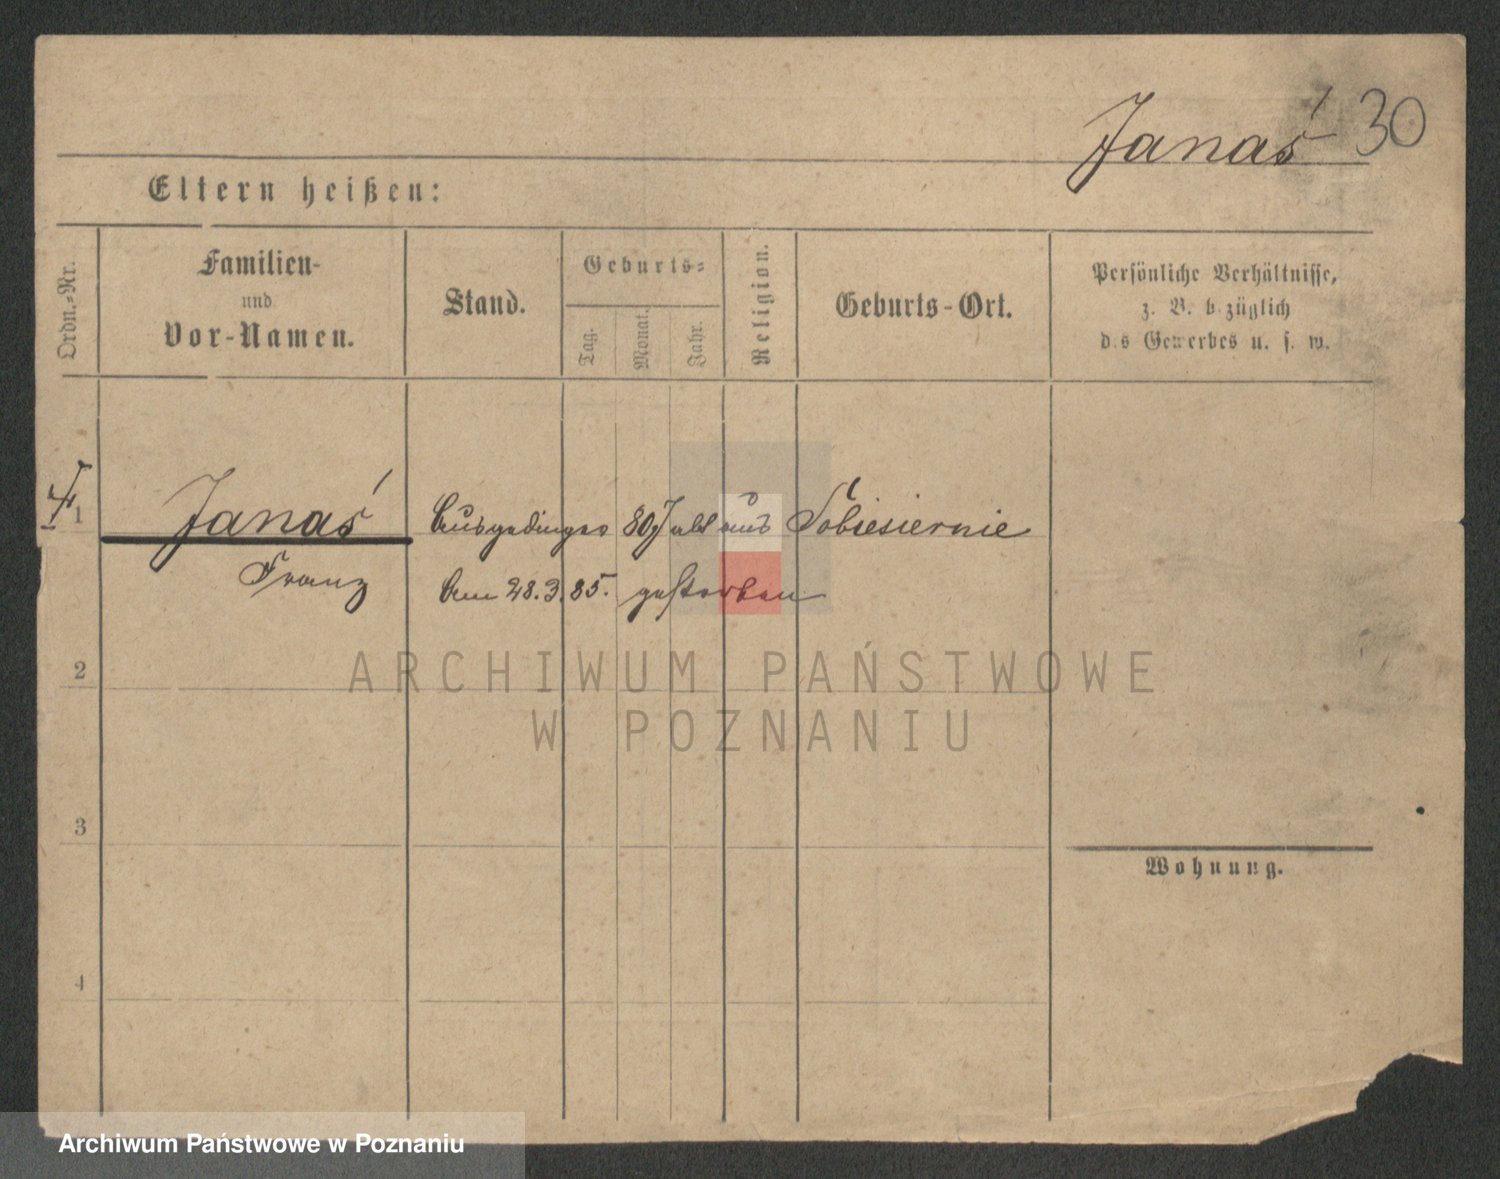 Janaś 30
Eltern heißen:
Ordn.-Nr.
Familien-
und
Vor-Namen.
Stand.
Geburts-
Tag.
Monat.
Jahr.
Religion.
Geburts-Ort.
Persönliche Verhältnisse,
z. B. b züglich
d s Gewerbes u. s. w.
1 Janaś Ausgedinger 80 J alt aus Sobiesiernie
Franz Am 28.3.85. gestorben
2
3
4
Wohnung.
ARCHIWUM PAŃSTWOWE
W POZNANIU
Archiwum Państwowe w Poznaniu